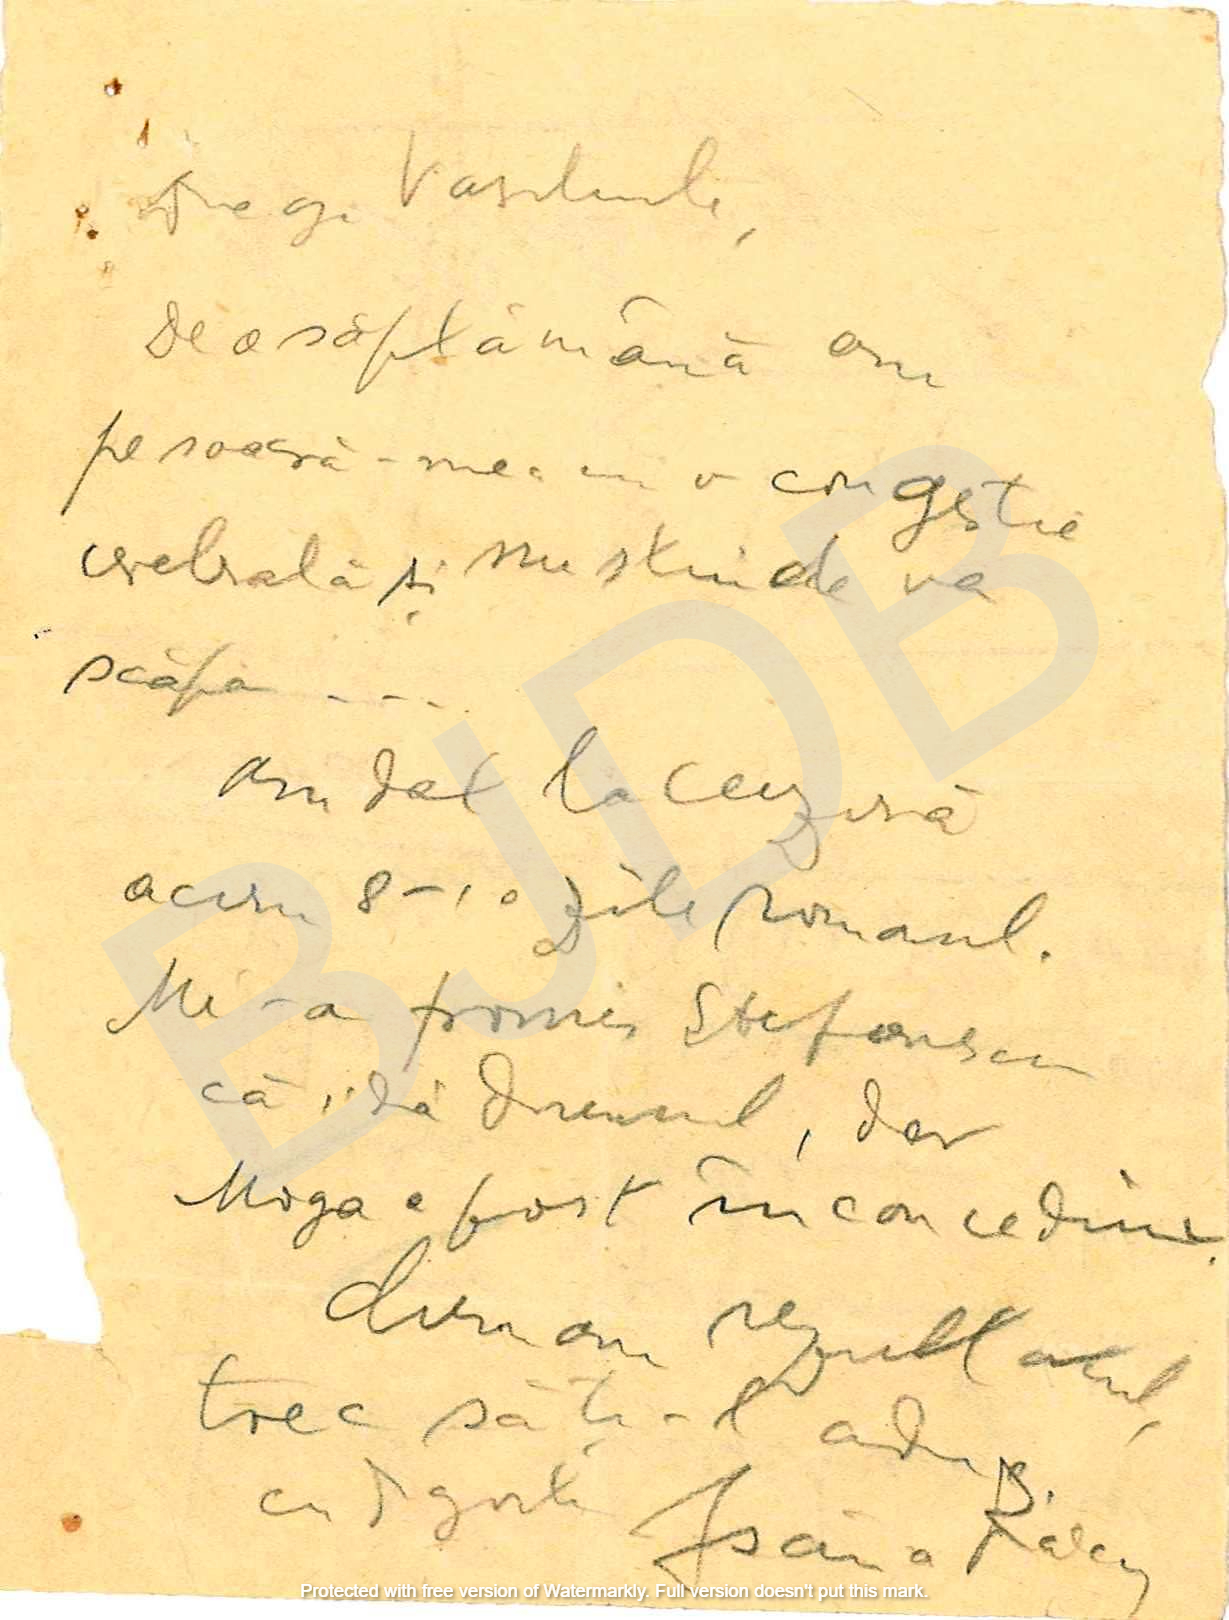 Dragă Vasilule,
De o săptămână am
pe soacră-mea cu o congestie
cerebrală și nu știu de va
scăpa ....
Am dat la cenzură
acum 8-10 zile romanul.
Mi-a promis Stefanescu
că-i dă drumul, dar
Moga a fost în concediu.
Cum am rezultatul,
trec să ți-l aduc
cu dragoste
BJDB
Protected with free version of Watermarkly. Full version doesn't put this mark.